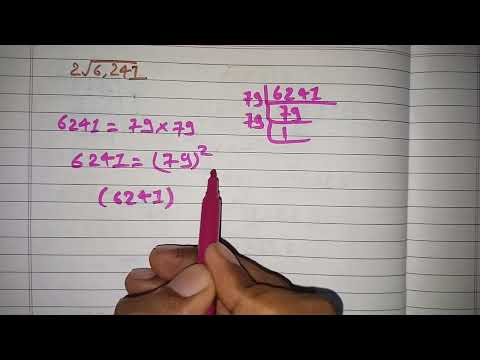 2√6,241
6241 = 79 × 79
6241 = (79)²
(6241)
79 | 6241
79 | 79
1